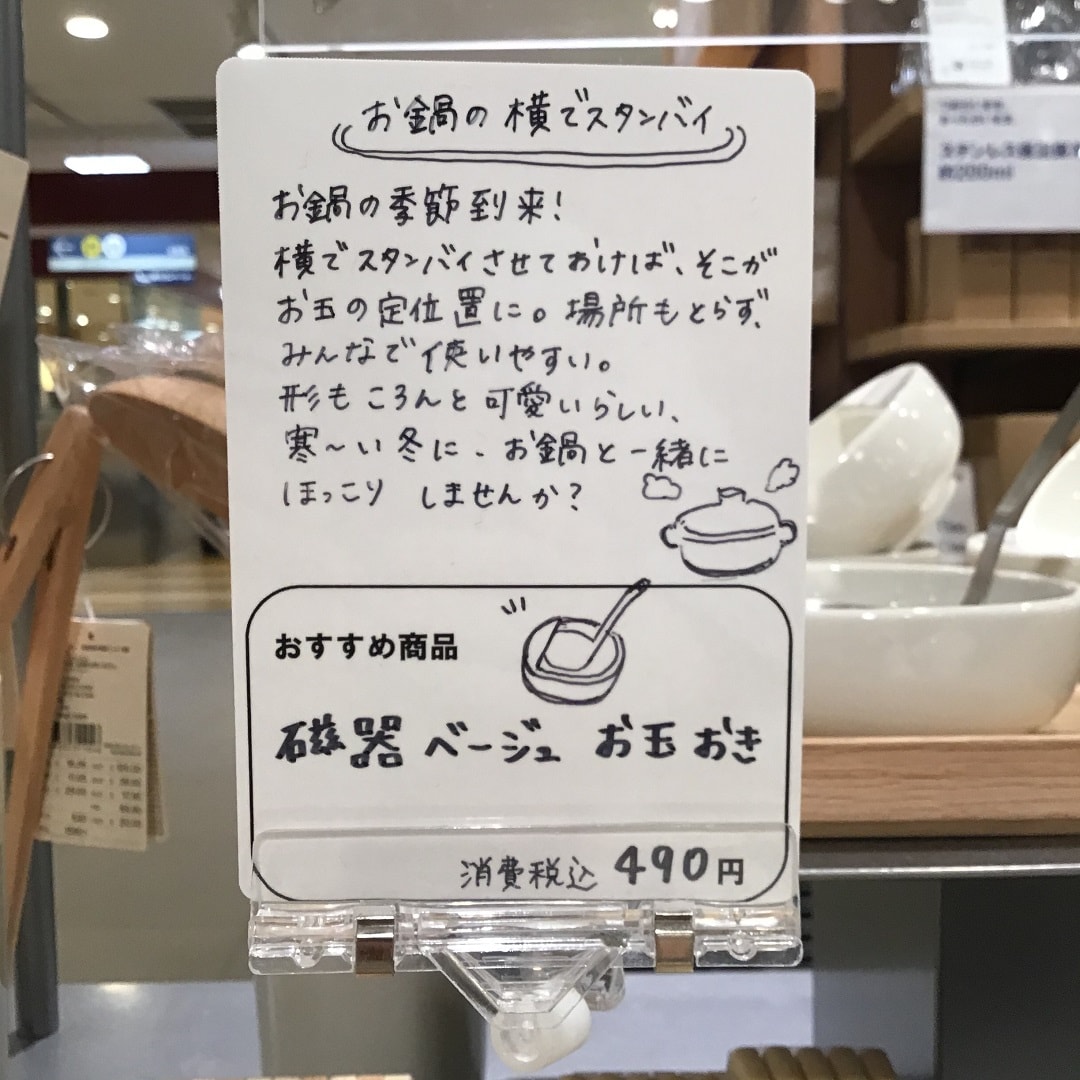 お鍋の横でスタンバイ
お鍋の季節到来!
横でスタンバイさせておけば、そこが
お玉の定位置に。場所もとらず、
みんなで使いやすい。
形もころんと可愛いらしい、
寒〜い冬に、お鍋と一緒に
ほっこり しませんか?
おすすめ商品
磁器 ベージュ お玉おき
消費税込 490円
約200ml